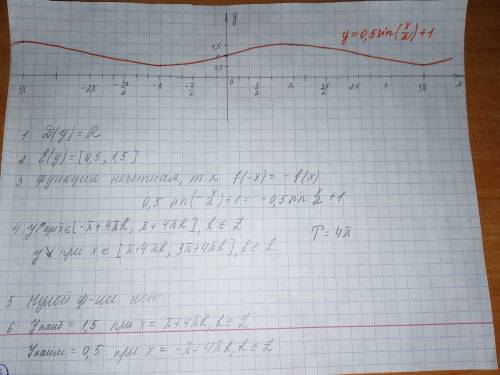 y
y=0,5sin(x/2)+1
1,5
1
0,5
-3π -2π -3π/2 -π -π/2 0 π/2 π 3π/2 2π 3π x
1. D(y)=R
2. E(y)=[0,5, 1,5]
3. Функция нечетная, т.к. f(-x)=-f(x)
0,5 sin(-x/2)+1=-0,5sin x/2+1
4. y↑ при x∈[-π+4πk, π+4πk], k∈Z T=4π
y↓ при x∈[π+4πk, 3π+4πk], k∈Z
5 Нулей ф-ии нет
6. yнаиб=1,5 при x=π+4πk, k∈Z
yнаим=0,5 при x=-π+4πk, k∈Z